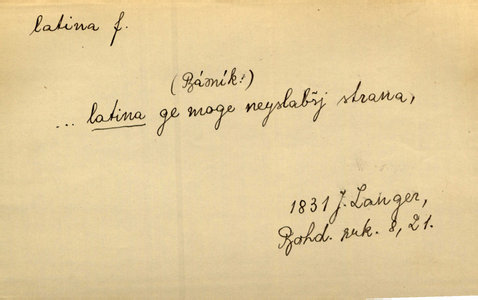 latina f.
(Básník:)
... latina ge moge neyslabšj strana,
1831 J. Langer,
Bohd. ruk. 8, 21.